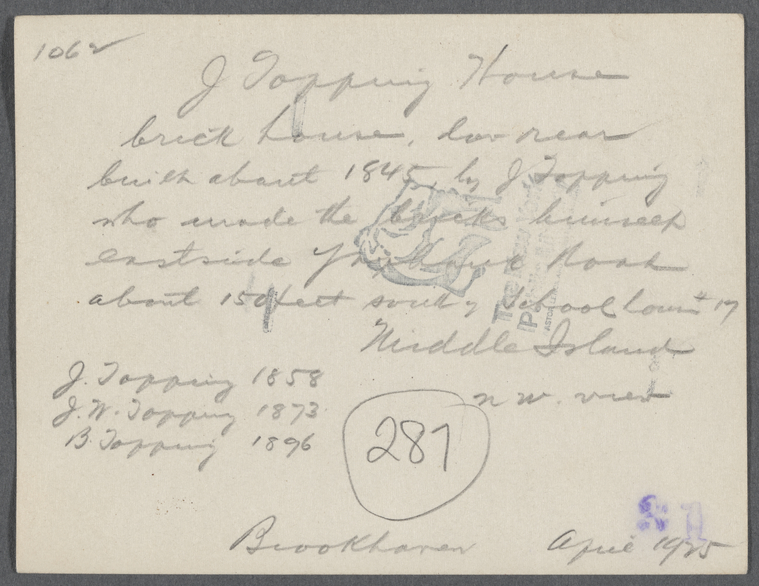 1062
J Topping House
brick house, low rear
built about 1845, by J Topping
who made the bricks himself
eastside Yaphank Road
about 150 feet south of School house # 17
Middle Island
n w. view
J. Topping 1858
J. W. Topping 1873
B. Topping 1896
287
81
Brookhaven April 1925